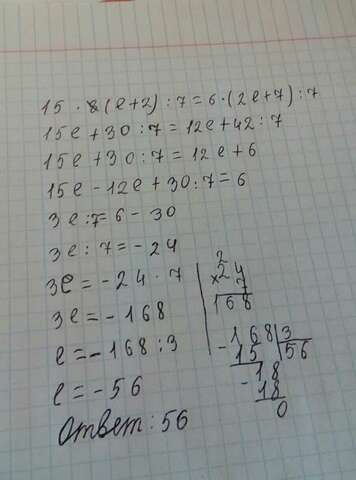 15 · 8(e+2) : 7 = 6 · (2e+7) : 7
15e + 30 : 7 = 12e + 42 : 7
15e + 30 : 7 = 12e + 6
15e - 12e + 30 : 7 = 6
3e : 7 = 6 - 30
3e : 7 = - 24
3e = - 24 · 7
3e = - 168
e = - 168 : 3
e = - 56
Ответ: 56
2
× 24
7
168
- 168 3
15 56
- 18
18
0